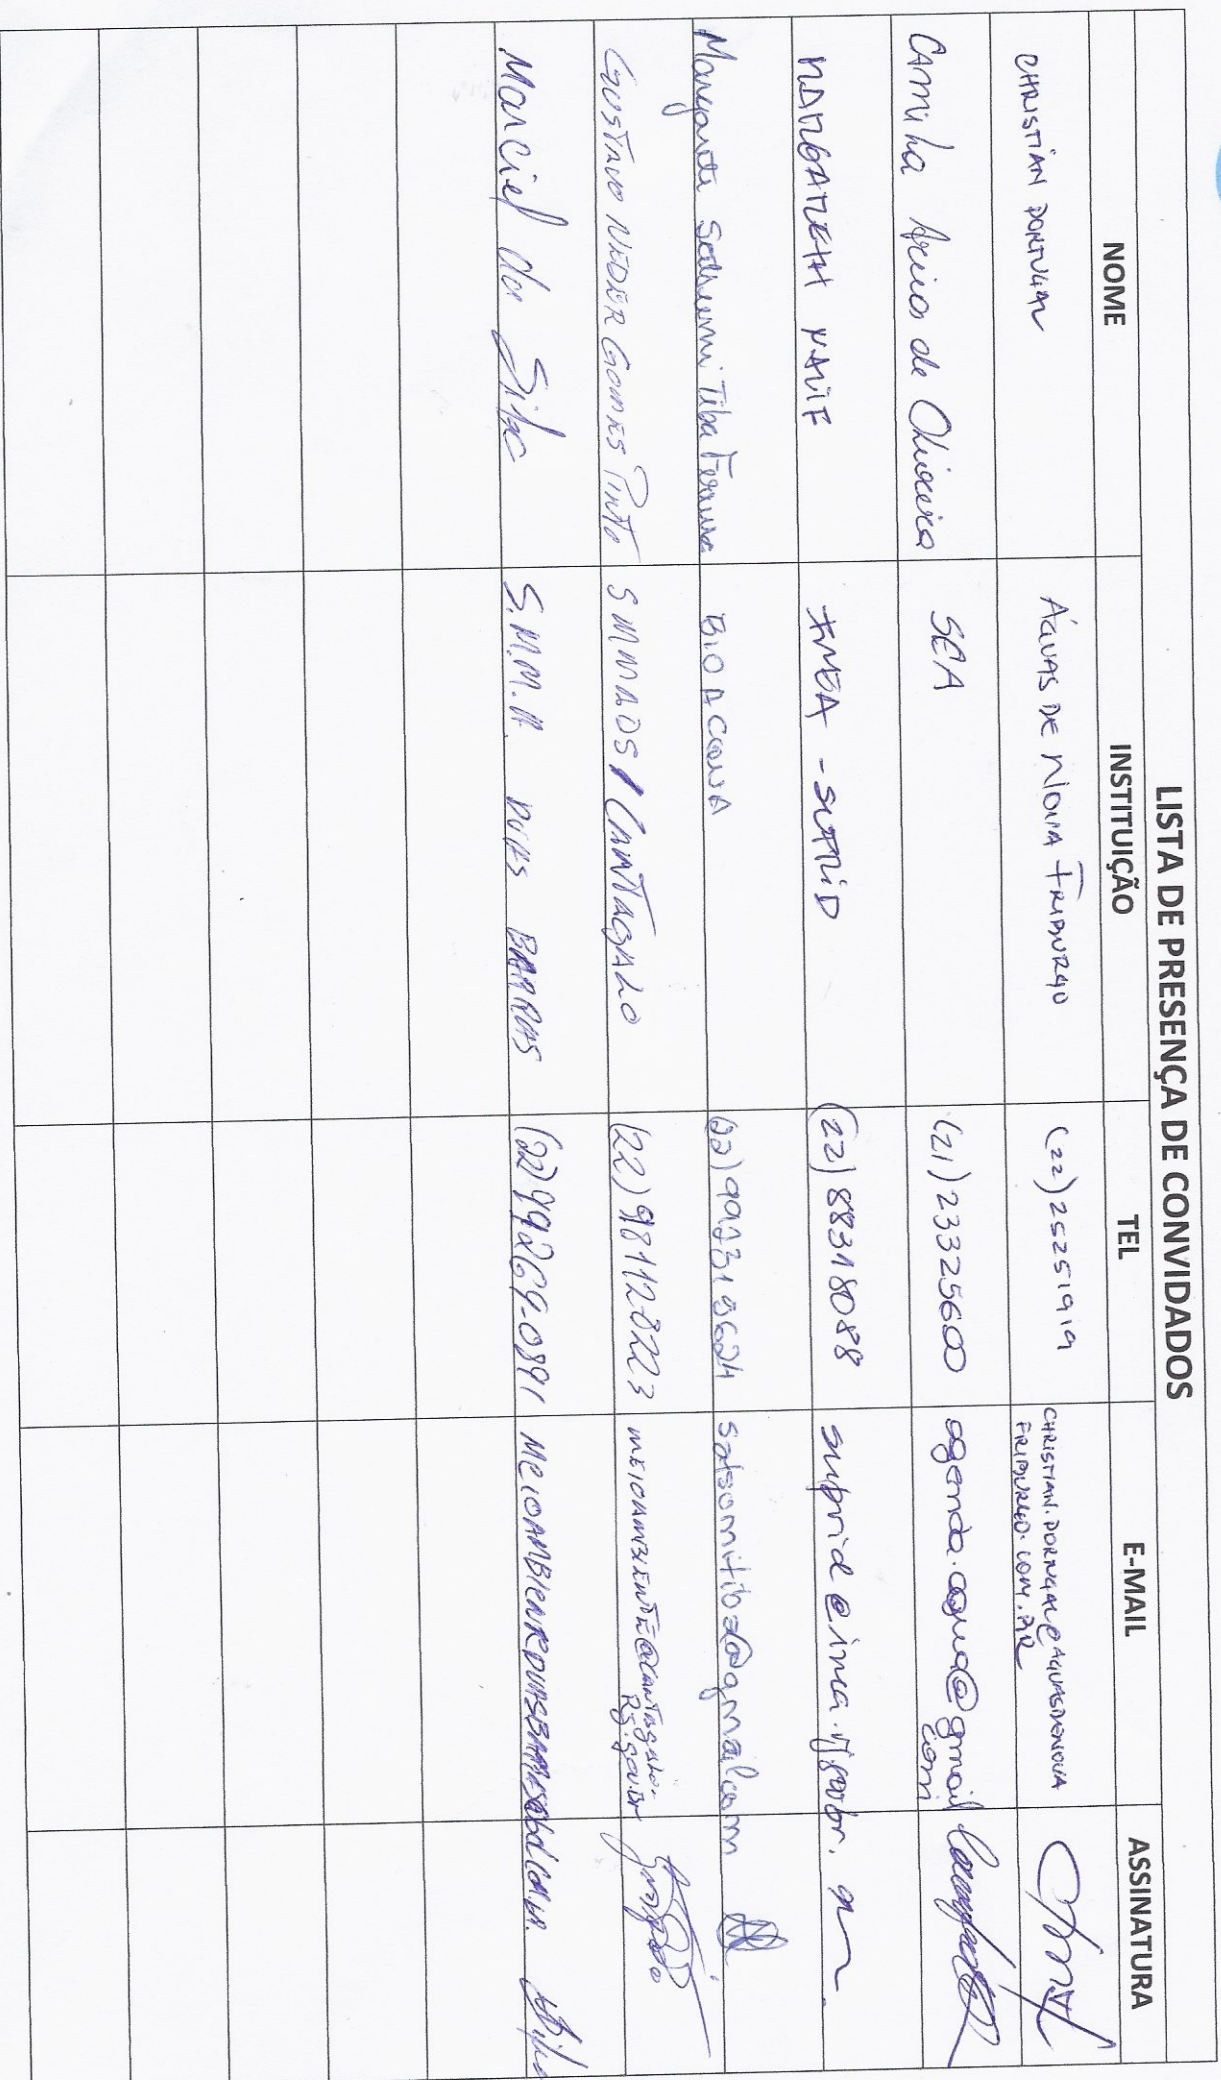 LISTA DE PRESENÇA DE CONVIDADOS
NOME INSTITUIÇÃO TEL E-MAIL ASSINATURA
CHRISTIAN PORTUGAL ÁGUAS DE NOVA FRIBURGO (22) 25251919 CHRISTIAN.PORTUGAL@AGUASDENOVA
FRIBURGO.COM.BR
Camila Areias de Oliveira SEA (21) 23325600 agenda.agua@gmail
com
MARGARETH NACIF INEA - SUPRID (22) 88318088
Margareth Satsumi Tiba Ferreira BIOACQUA satsomitiba@gmail.com
GUSTAVO NEDER GOMES PINTO SMMADS / CANTAGALO (22) 981128223 MEIOAMBIENTE@CANTAGALO.
RJ.gov.br
Marciel da Silva S.M.M.A. DUAS BARRAS (22) 99269-0891